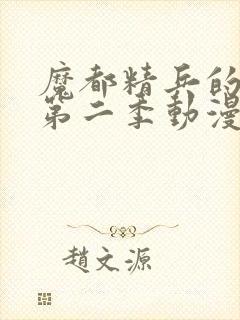 魔都精兵的
第二季動漫
趙文源